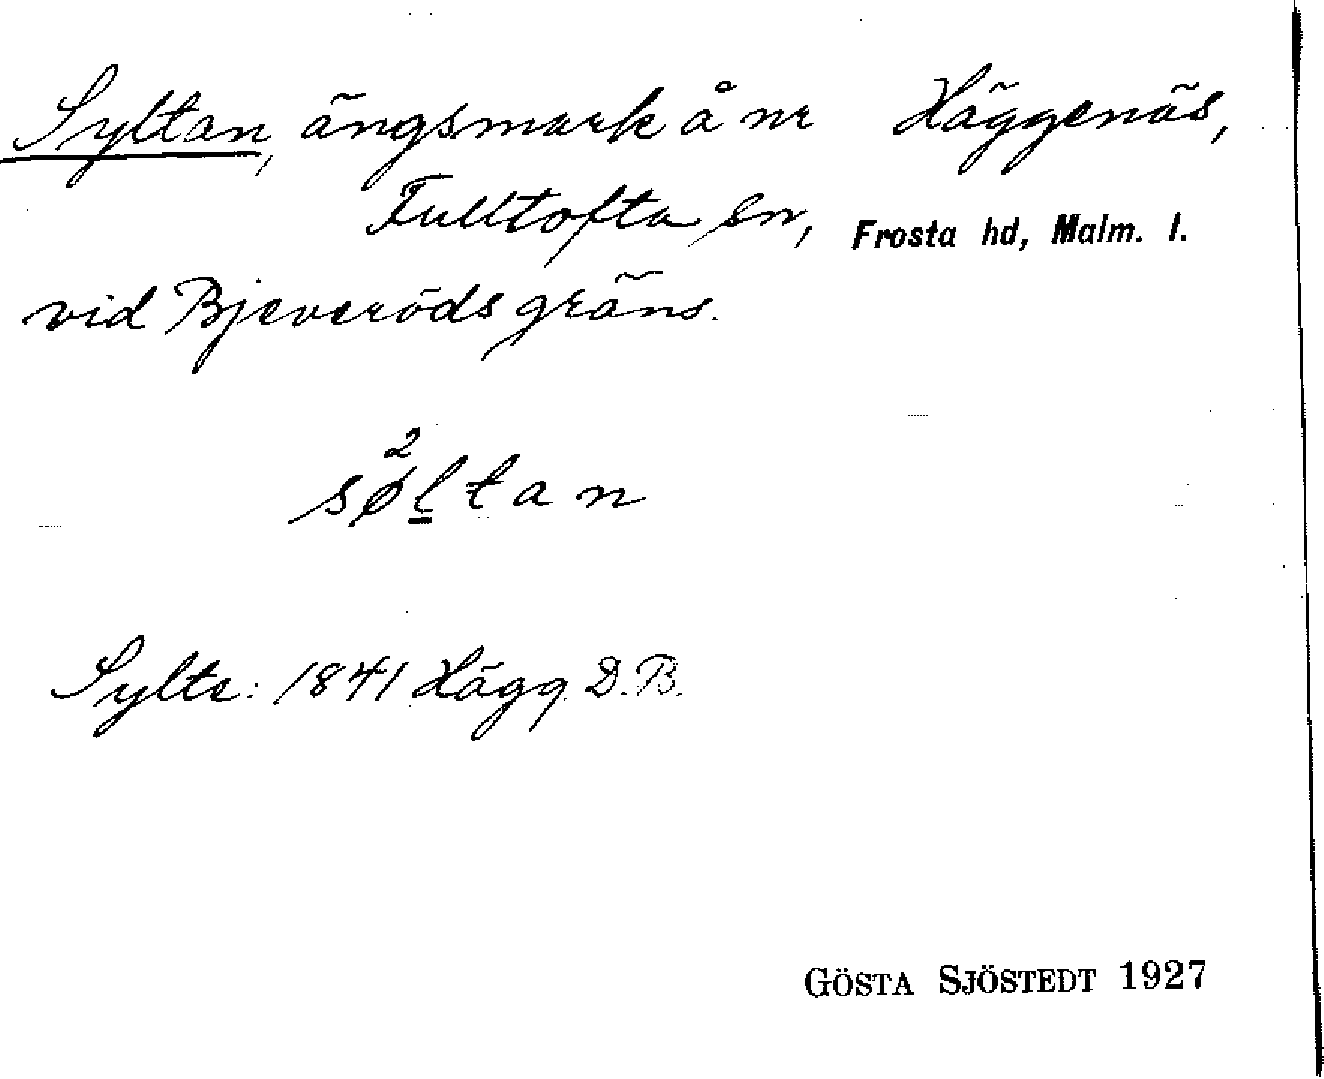 Syltan, ängsmark å nr Häggenäs,
Fulltofta sn, Frosta hd, Malm. l.
vid Bjeveröds gräns.
2
søl̲tan
Sylte: 1841 Hägg. D.B.
GÖSTA SJÖSTEDT 1927